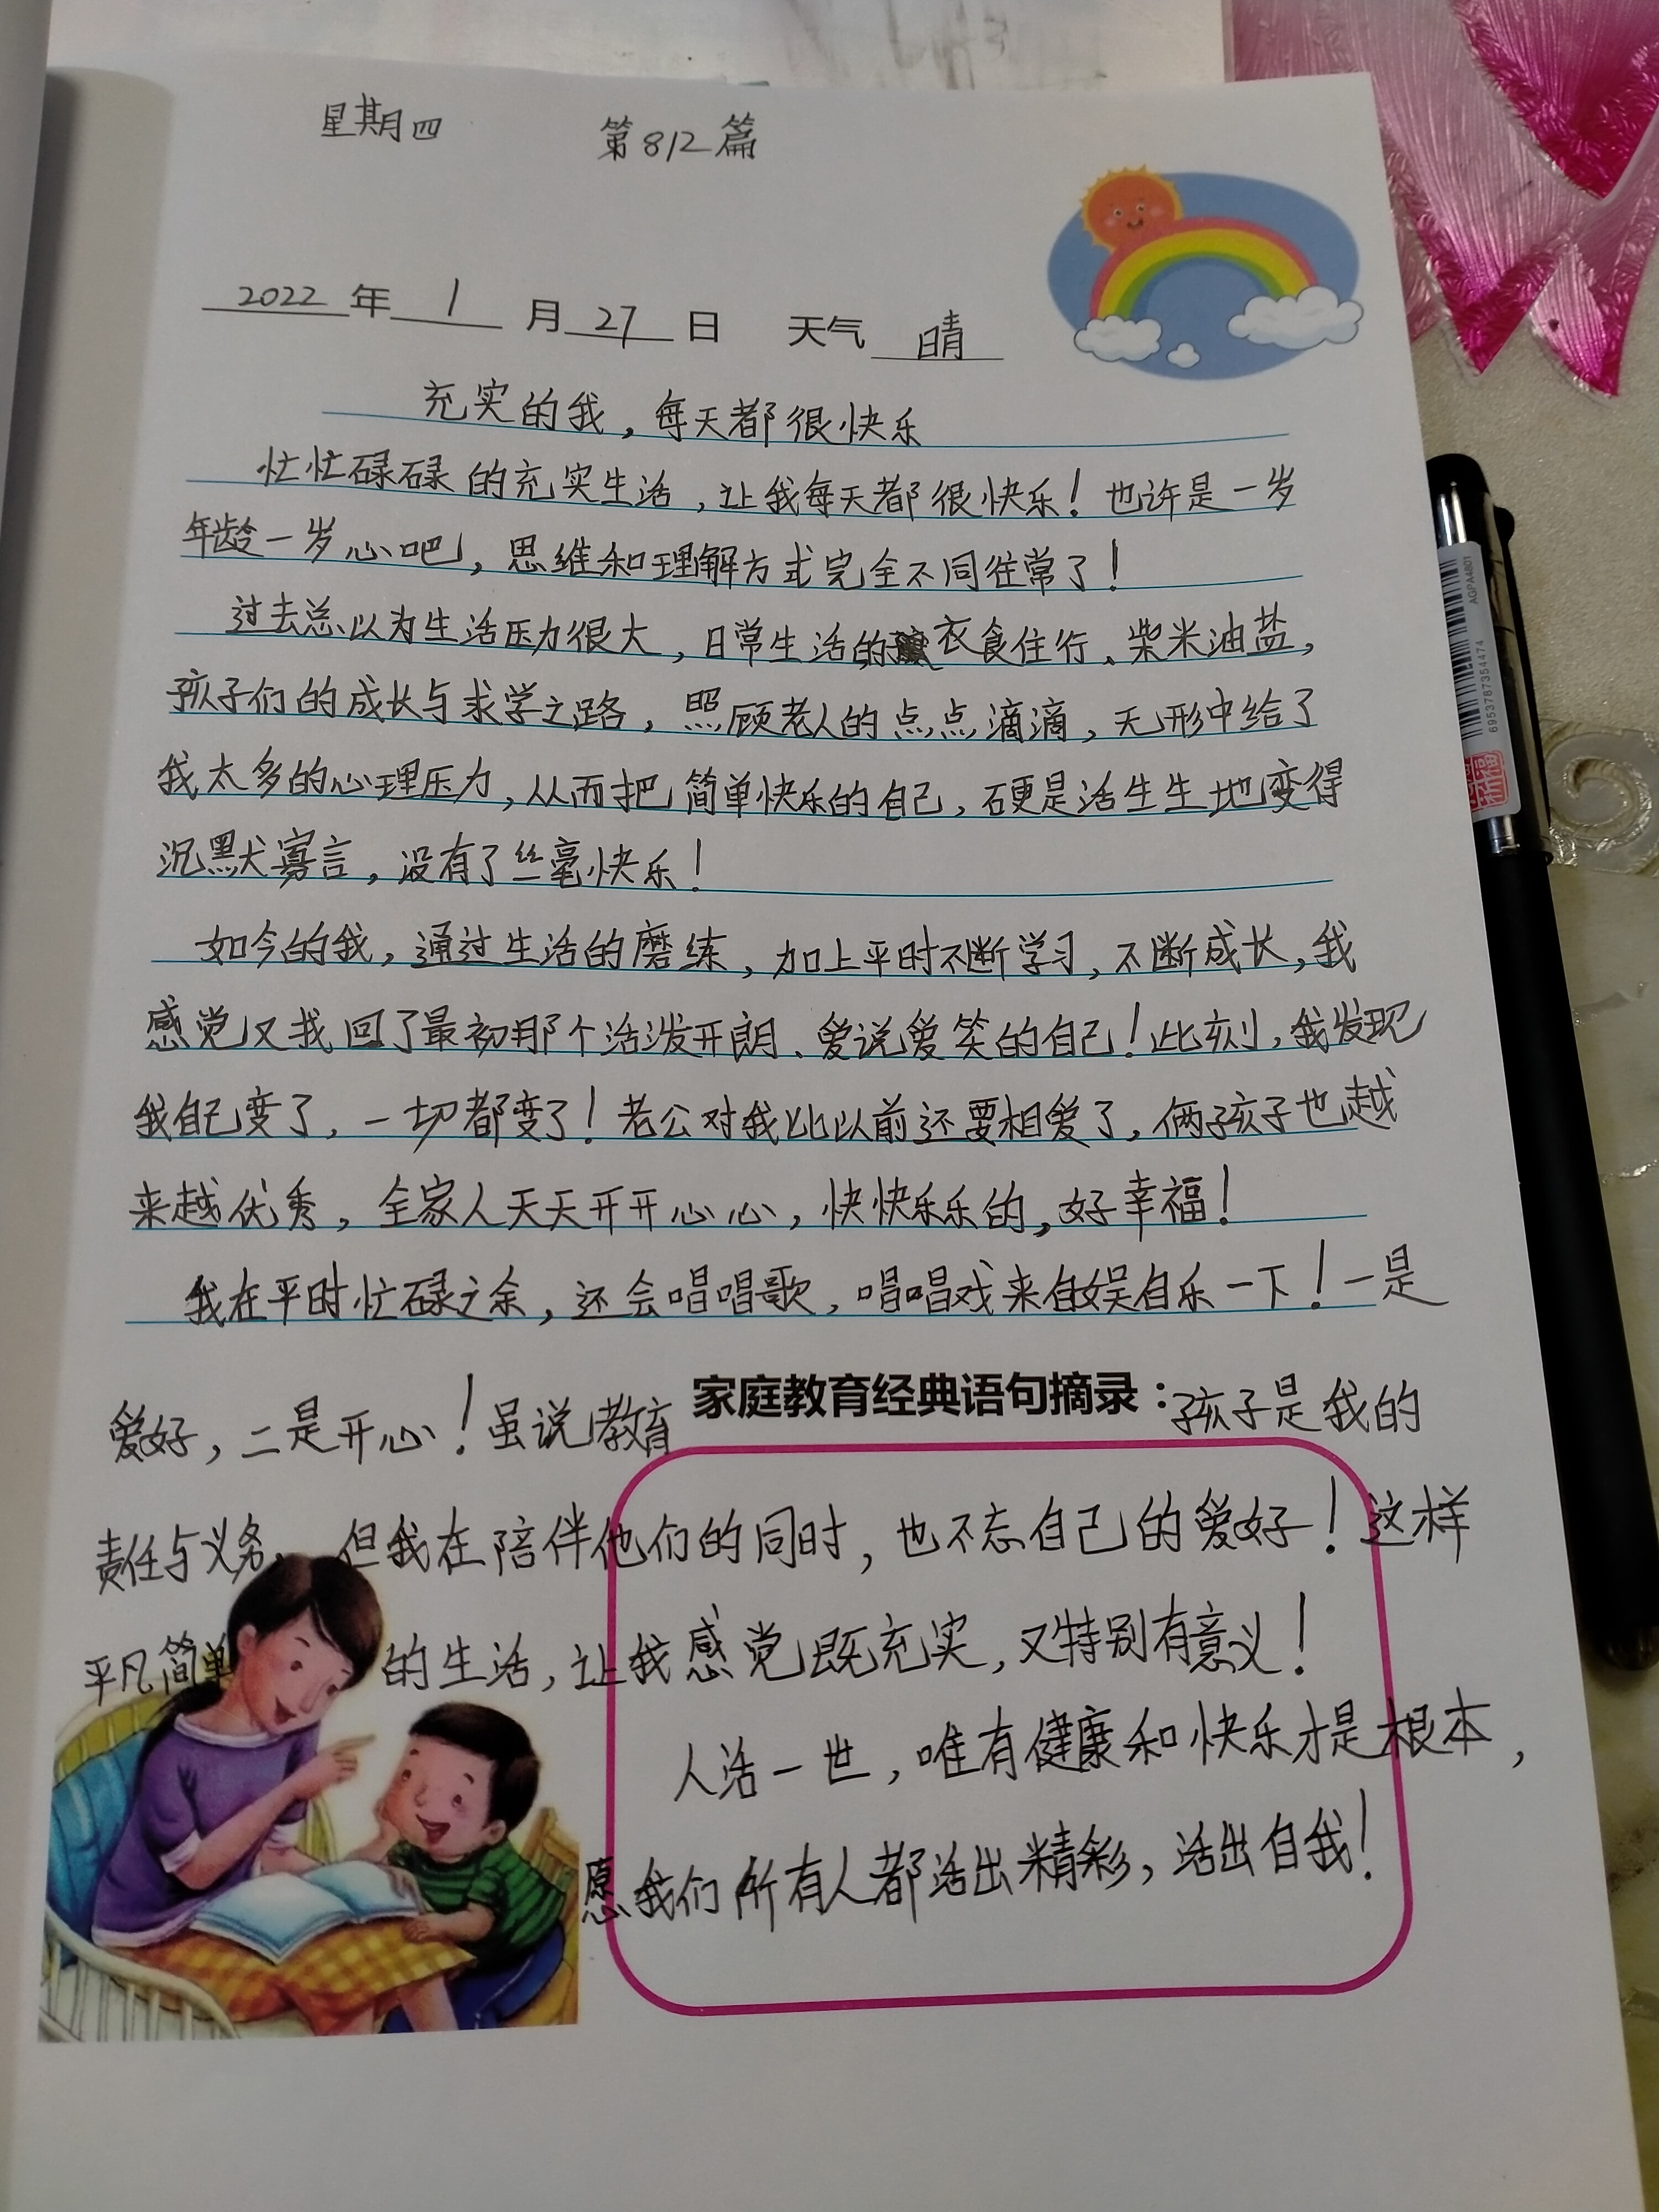 星期四 第812篇
2022年1月27日 天气 晴
充实的我，每天都很快乐
忙忙碌碌的充实生活，让我每天都很快乐！也许是一岁
年龄一岁心吧，思维和理解方式完全不同往常了！
过去总以为生活压力很大，日常生活的衣食住行、柴米油盐，
孩子们的成长与求学之路，照顾老人的点点滴滴，无形中给了
我太多的心理压力，从而把简单快乐的自己，硬是活生生地变得
沉默寡言，没有了丝毫快乐！
如今的我，通过生活的磨练，加上平时不断学习，不断成长，我
感觉又找回了最初那个活泼开朗、爱说爱笑的自己！此刻，我发现
我自己变了，一切都变了！老公对我比以前还要相爱了，俩孩子也越
来越优秀，全家人天天开开心心，快快乐乐的，好幸福！
我在平时忙碌之余，还会唱唱歌，唱唱戏来自娱自乐一下！一是
爱好，二是开心！虽说教育 家庭教育经典语句摘录：孩子是我的
责任与义务，但我在陪伴他们的同时，也不忘自己的爱好！这样
平凡简单的生活，让我感觉既充实，又特别有意义！
人活一世，唯有健康和快乐才是根本，
愿我们所有人都活出精彩，活出自我！
AGPA4801
6953787354474